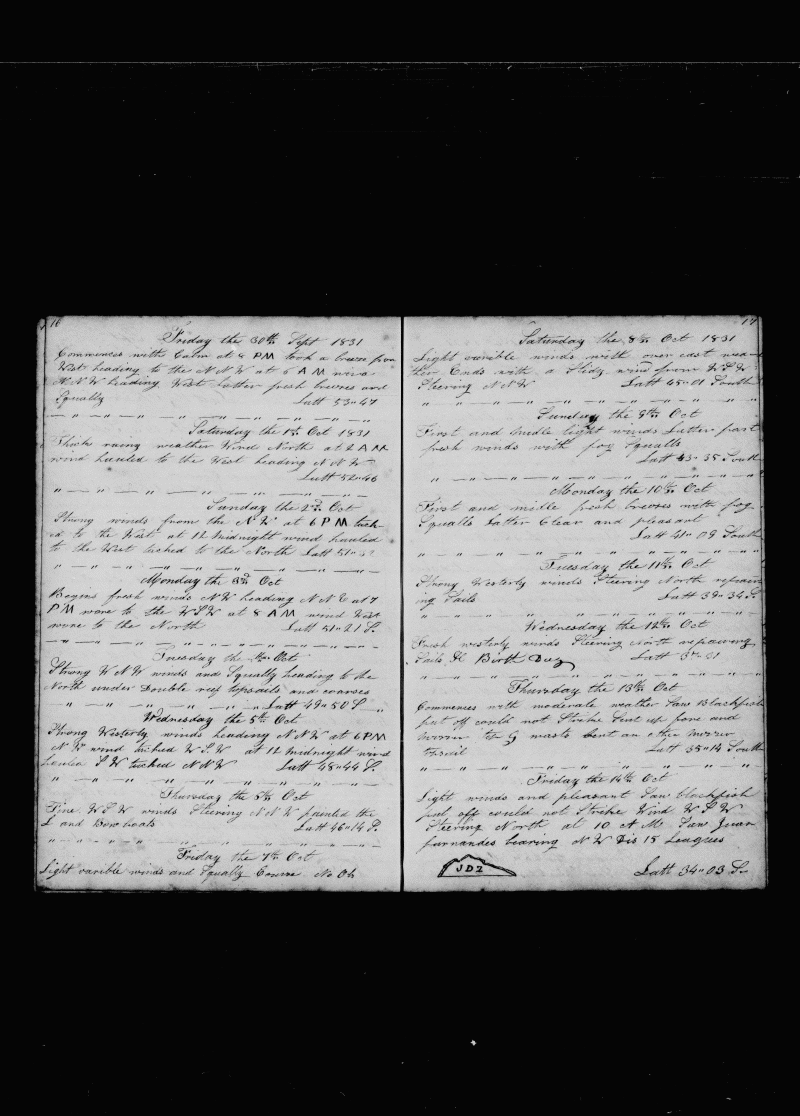 16
Friday the 30th Sept 1831
Commences with Calm at 8 PM took a breeze from
West heading to the NNW at 6 AM wind
NNW heading West latter fresh breezes and
Squally Latt 53"47
Saturday the 1th Oct 1831
Thick rainy weather Wind North at 2 AM
wind hauled to the West heading NNW
Latt 52"46
Sunday the 2nd Oct
Strong winds from the NW at 6 PM tack-
ed to the West at 12 Midnight wind hauled
to the West tacked to the North Latt 51"
Monday the 3rd Oct
Begins fresh winds NW heading NNE at 7
PM wore to the WSW at 8 AM wind West
wore to the North Latt 51"21 S.
Tuesday the 4th Oct
Strong WNW winds and Squally heading to the
North under Double reef topsails and coarses
Latt 49"50 S
Wednesday the 5th Oct
Strong Westerly winds heading NNW at 6 PM
NW wind tacked WSW at 12 midnight wind
SW tacked NNW Latt 48"44 S.
Thursday the 5th Oct
Fine WSW winds Steering NNW painted the
L and Bow boats Latt 46"14 S.
Friday the 7th Oct
Light varible winds and Squally Course No Ob
17
Saturday the 8th Oct 1831
Light varible winds with over cast wea-
ther Ends with a Stidy wind from WSW
Steering NNW Latt 45"01 South
Sunday the 9th Oct
First and midle light winds Latter part
fresh winds with fog Squalls
Latt 43"35 South
Monday the 10th Oct
First and midle fresh breezes with fog
Squalls Latter Clear and pleasant
Latt 41"09 South
Tuesday the 11th Oct
Strong Westerly winds Steering North repair-
ing Sails Latt 39"34 S.
Wednesday the 12th Oct
Fresh westerly winds Steering North repairing
Sails Birth Day Latt
Thursday the 13th Oct
Commences with moderate weather Saw Blackfish
put off could not Strike Sent up fore and
masts bent an other
Latt 35"14 South
Friday the 14th Oct
Light winds and pleasant Saw blackfish
put off could not Strike Wind WSW
Steering North at 10 AM San Juan
furnandes bearing NW Dis 15 Leagues
JDZ
Latt 34"03 S.